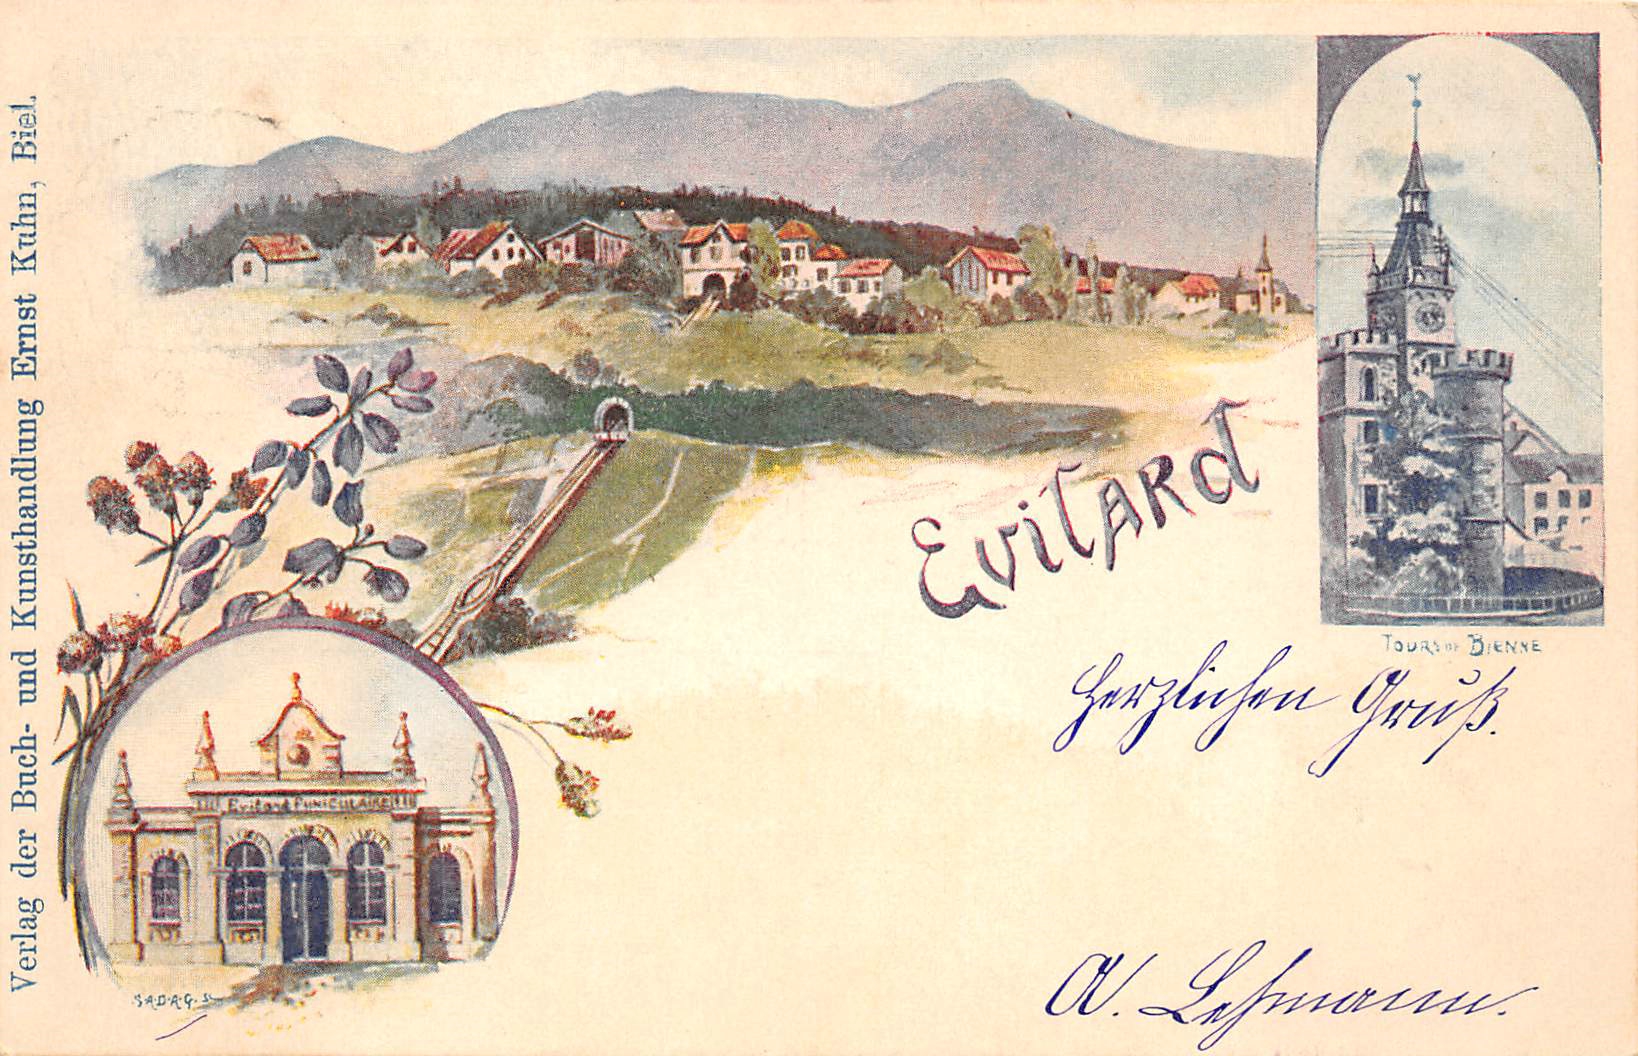 Verlag der Buch- und Kunsthandlung Ernst Kuhn, Biel.
Evilard
TOURS DE BIENNE
Herzlichen Gruß.
Evilard FUNICULAIRE
A. Lehmann.
S.A.D.A.G.